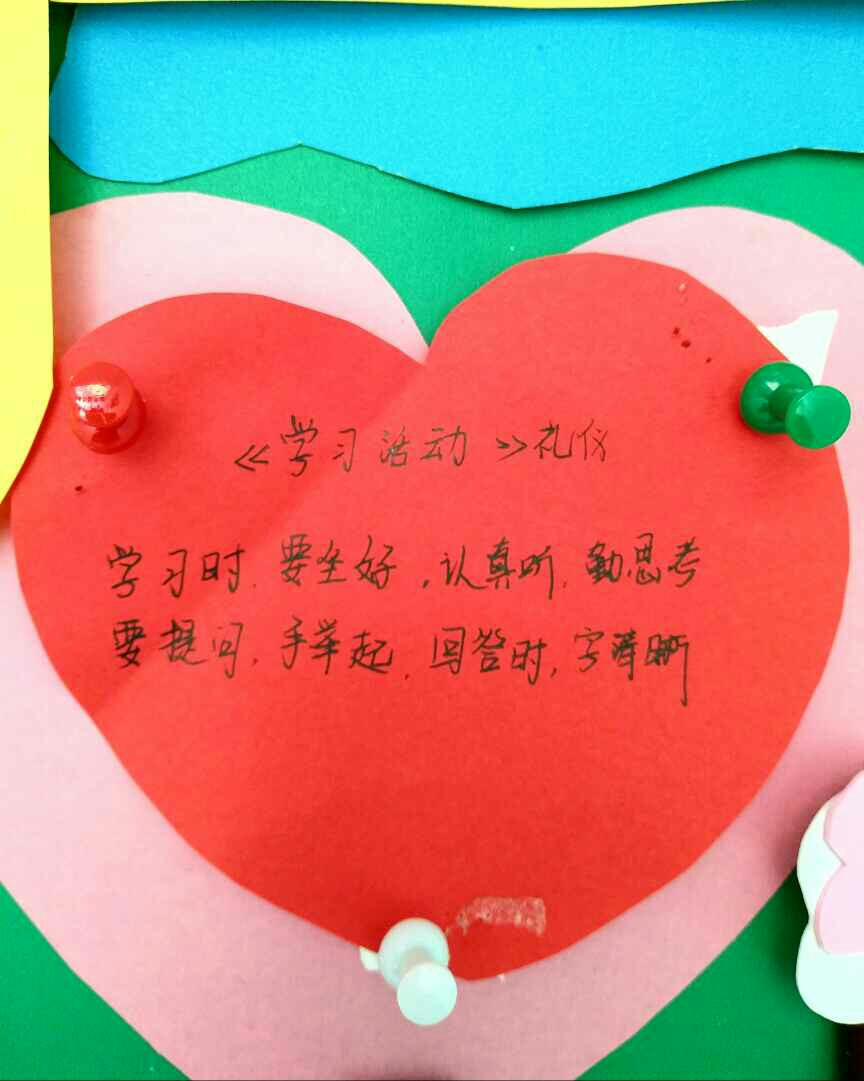 《学习活动》礼仪
学习时,要坐好,认真听,勤思考
要提问,手举起,回答时,字清晰